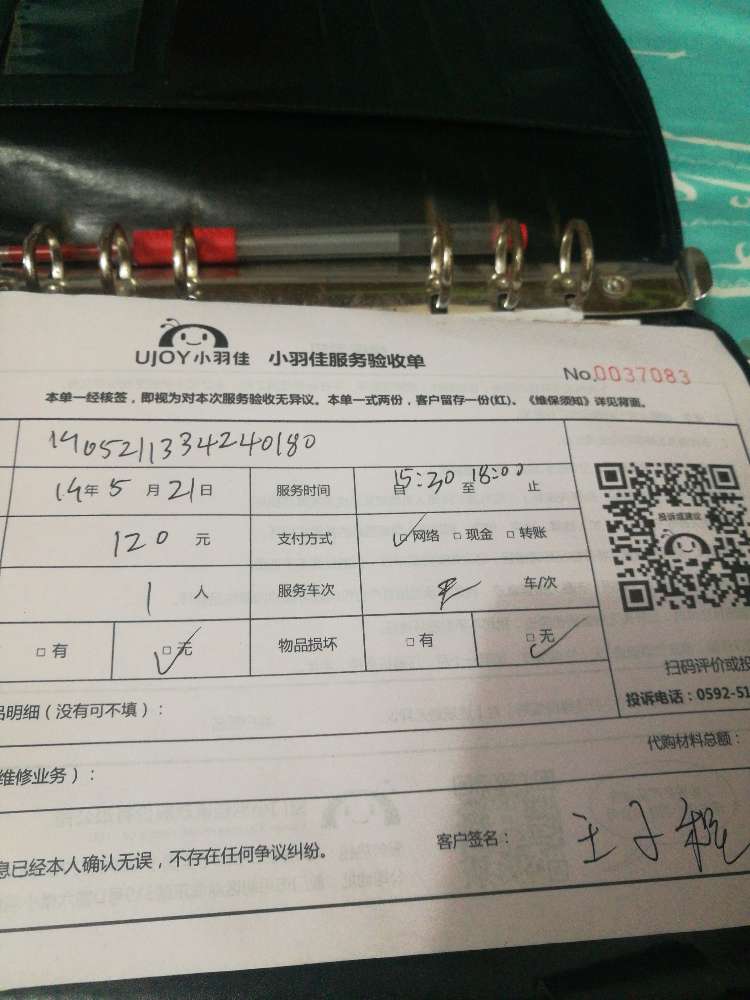 UJOY小羽佳 小羽佳服务验收单
No.0037083
本单一经核签，即视为对本次服务验收无异议。本单一式两份，客户留存一份(红)、《维保须知》详见背面。
1905211334240180
19年5月21日 服务时间 自15:30至18:00止
120元 支付方式 □网络 □现金 □转账
投诉或建议
1人 服务车次 车/次
□有 □无 物品损坏 □有 □无
扫码评价或投
品明细（没有可不填）：
投诉电话：0592-51
代购材料总额：
维修业务）：
息已经本人确认无误，不存在任何争议纠纷。 客户签名：王子